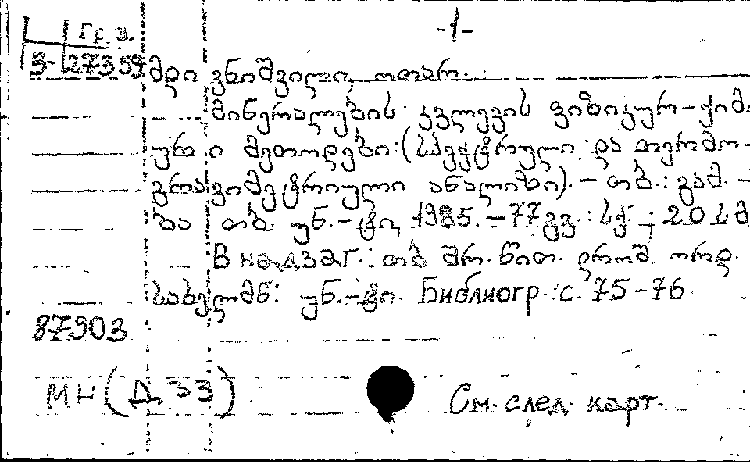 Гр. 3. -1-
3-27359 მდივნიშვილი, ოთარ.
მინერალების კვლევის ფიზიკურ-ქიმი-
ური მეთოდები: (სპექტრული და თერმო-
გრავიმეტრიული ანალიზი). - თბ.: გამ. -
ბა თბ. უნ.-ტი, 1985. - 77 გვ.: სქ.; 20 სმ
В надзаг.: თბ შრ. წით. დროშ. ორდ.
სახელმწ. უნ.-ტი. Библиогр.: с. 75-76.
87903
МН (Д 33) См. след. карт.